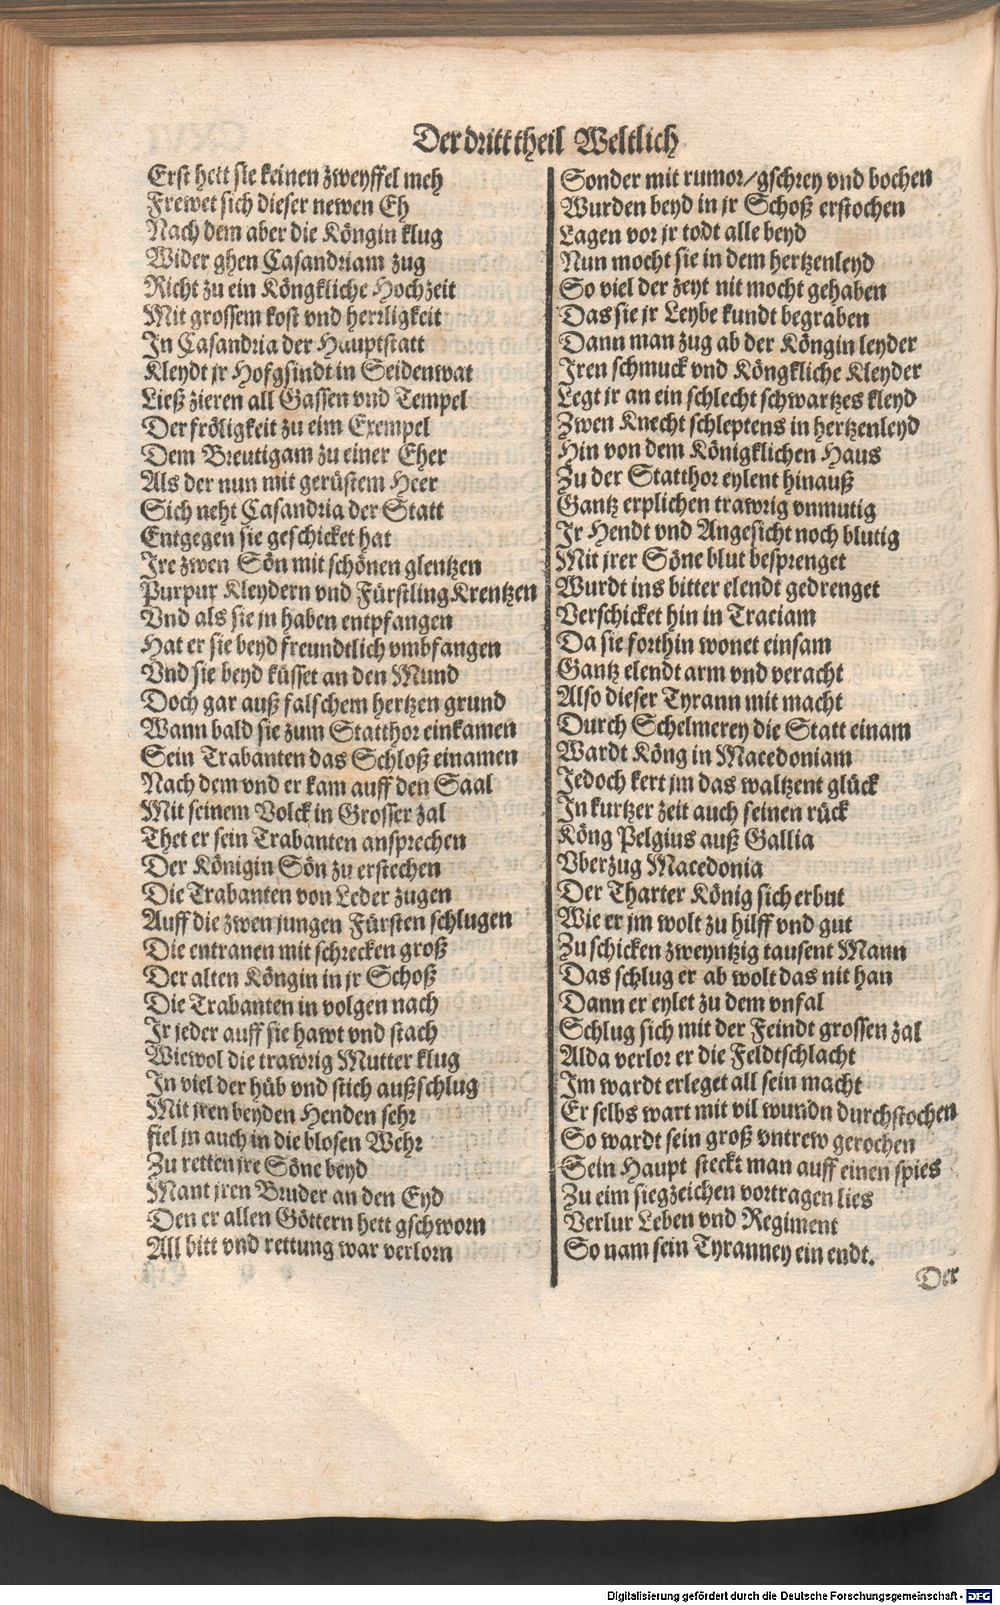 Der dritt theil Weltlich
Erst hett sie keinen zweyffel meh
Frewet sich dieser newen Eh
Nach dem aber die Köngin klug
Wider ghen Casandriam zug
Richt zu ein Köngkliche Hochzeit
Mit grossem kost vnd herrligkeit
In Casandria der Hauptstatt
Kleydt jr Hofgsindt in Seidenwat
Ließ zieren all Gassen vnd Tempel
Der fröligkeit zu eim Exempel
Dem Breutigam zu einer Eher
Als der nun mit gerüstem Heer
Sich neht Casandria der Statt
Entgegen sie geschicket hat
Ire zwen Sön mit schönen glentzen
Purpur Kleydern vnd Fürstling Krentzen
Vnd als sie jn haben entpfangen
Hat er sie beyd freundtlich vmbfangen
Vnd sie beyd küsset an den Mund
Doch gar auß falschem hertzen grund
Wann bald sie zum Statthor einkamen
Sein Trabanten das Schloß einamen
Nach dem vnd er kam auff den Saal
Mit seinem Volck in Grosser zal
Thet er sein Trabanten ansprechen
Der Königin Sön zu erstechen
Die Trabanten von Leder zugen
Auff die zwen jungen Fürsten schlugen
Die entranen mit schrecken groß
Der alten Köngin in jr Schoß
Die Trabanten in volgen nach
Ir jeder auff sie hawt vnd stach
Wiewol die trawrig Mutter klug
In viel der hüb vnd stich außschlug
Mit jren beyden Henden sehr
fiel jn auch in die blosen Wehr
Zu retten jre Söne beyd
Mant jren Bruder an den Eyd
Den er allen Göttern hett gschworn
All bitt vnd rettung war verlorn
Sonder mit rumor/gschrey vnd bochen
Wurden beyd in jr Schoß erstochen
Lagen vor jr todt alle beyd
Nun mocht sie in dem hertzenleyd
So viel der zeyt nit mocht gehaben
Das sie jr Leybe kundt begraben
Dann man zug ab der Köngin leyder
Iren schmuck vnd Köngkliche Kleyder
Legt jr an ein schlecht schwartzes kleyd
Zwen Knecht schleptens in hertzenleyd
Hin von dem Königklichen Haus
Zu der Statthor eylent hinauß
Gantz erplichen trawrig vnmutig
Ir Hendt vnd Angesicht noch blutig
Mit jrer Söne blut besprenget
Wurdt ins bitter elendt gedrenget
Verschicket hin in Traciam
Da sie forthin wonet einsam
Gantz elendt arm vnd veracht
Also dieser Tyrann mit macht
Durch Schelmerey die Statt einam
Wardt Köng in Macedoniam
Jedoch kert jm das waltzent glück
In kurtzer zeit auch seinen rück
Köng Pelgius auß Gallia
Vberzug Macedonia
Der Tharter König sich erbut
Wie er jm wolt zu hilff vnd gut
Zu schicken zweyntzig tausent Mann
Das schlug er ab wolt das nit han
Dann er eylet zu dem vnfal
Schlug sich mit der Feindt grossen zal
Alda verlor er die Feldtschlacht
Im wardt erleget all sein macht
Er selbs wart mit vil wundn durchstochen
So wardt sein groß vntrew gerochen
Sein Haupt steckt man auff einen spies
Zu eim siegzeichen vortragen lies
Verlur Leben vnd Regiment
So nam sein Tyranney ein endt.
Der
Digitalisierung gefördert durch die Deutsche Forschungsgemeinschaft - DFG